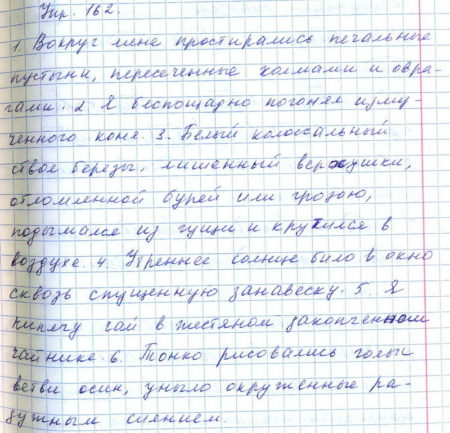 Упр. 162.
1. Вокруг меня простирались печальные
пустыни, пересеченные холмами и овра-
гами. 2. Я беспощадно погонял изму-
ченного коня. 3. Белый колоссальный
ствол березы, лишенный верхушки,
отломленной бурей или грозою,
подымался из гущи и круглился в
воздухе. 4. Утреннее солнце било в окно
сквозь спущенную занавеску. 5. Я
кипячу чай в жестяном закопченном
чайнике. 6. Тонко рисовались голые
ветви осин, уныло окруженные ра-
дужным сиянием.